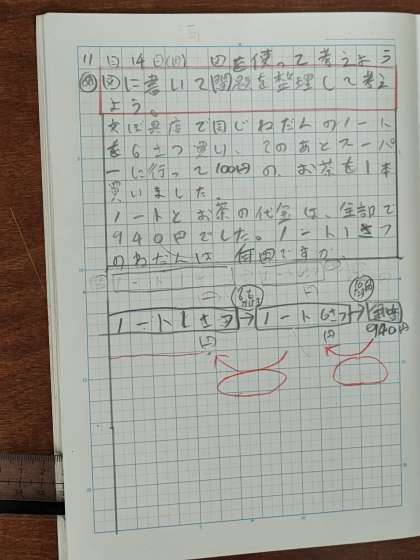 11月14日(月) 図を使って考えよう
め 図に書いて問題を整理して考え
よう。
文ぼ具店で同じねだんのノート
を6さつ買い、そのあとスーパ
ーに行って100円の、お茶を1本
買いました。
ノートとお茶の代金は、全部で
940円でした。ノート1さつ
のねだんは何円ですか。
ノート1さつ→ノート6さつ→全部
940円